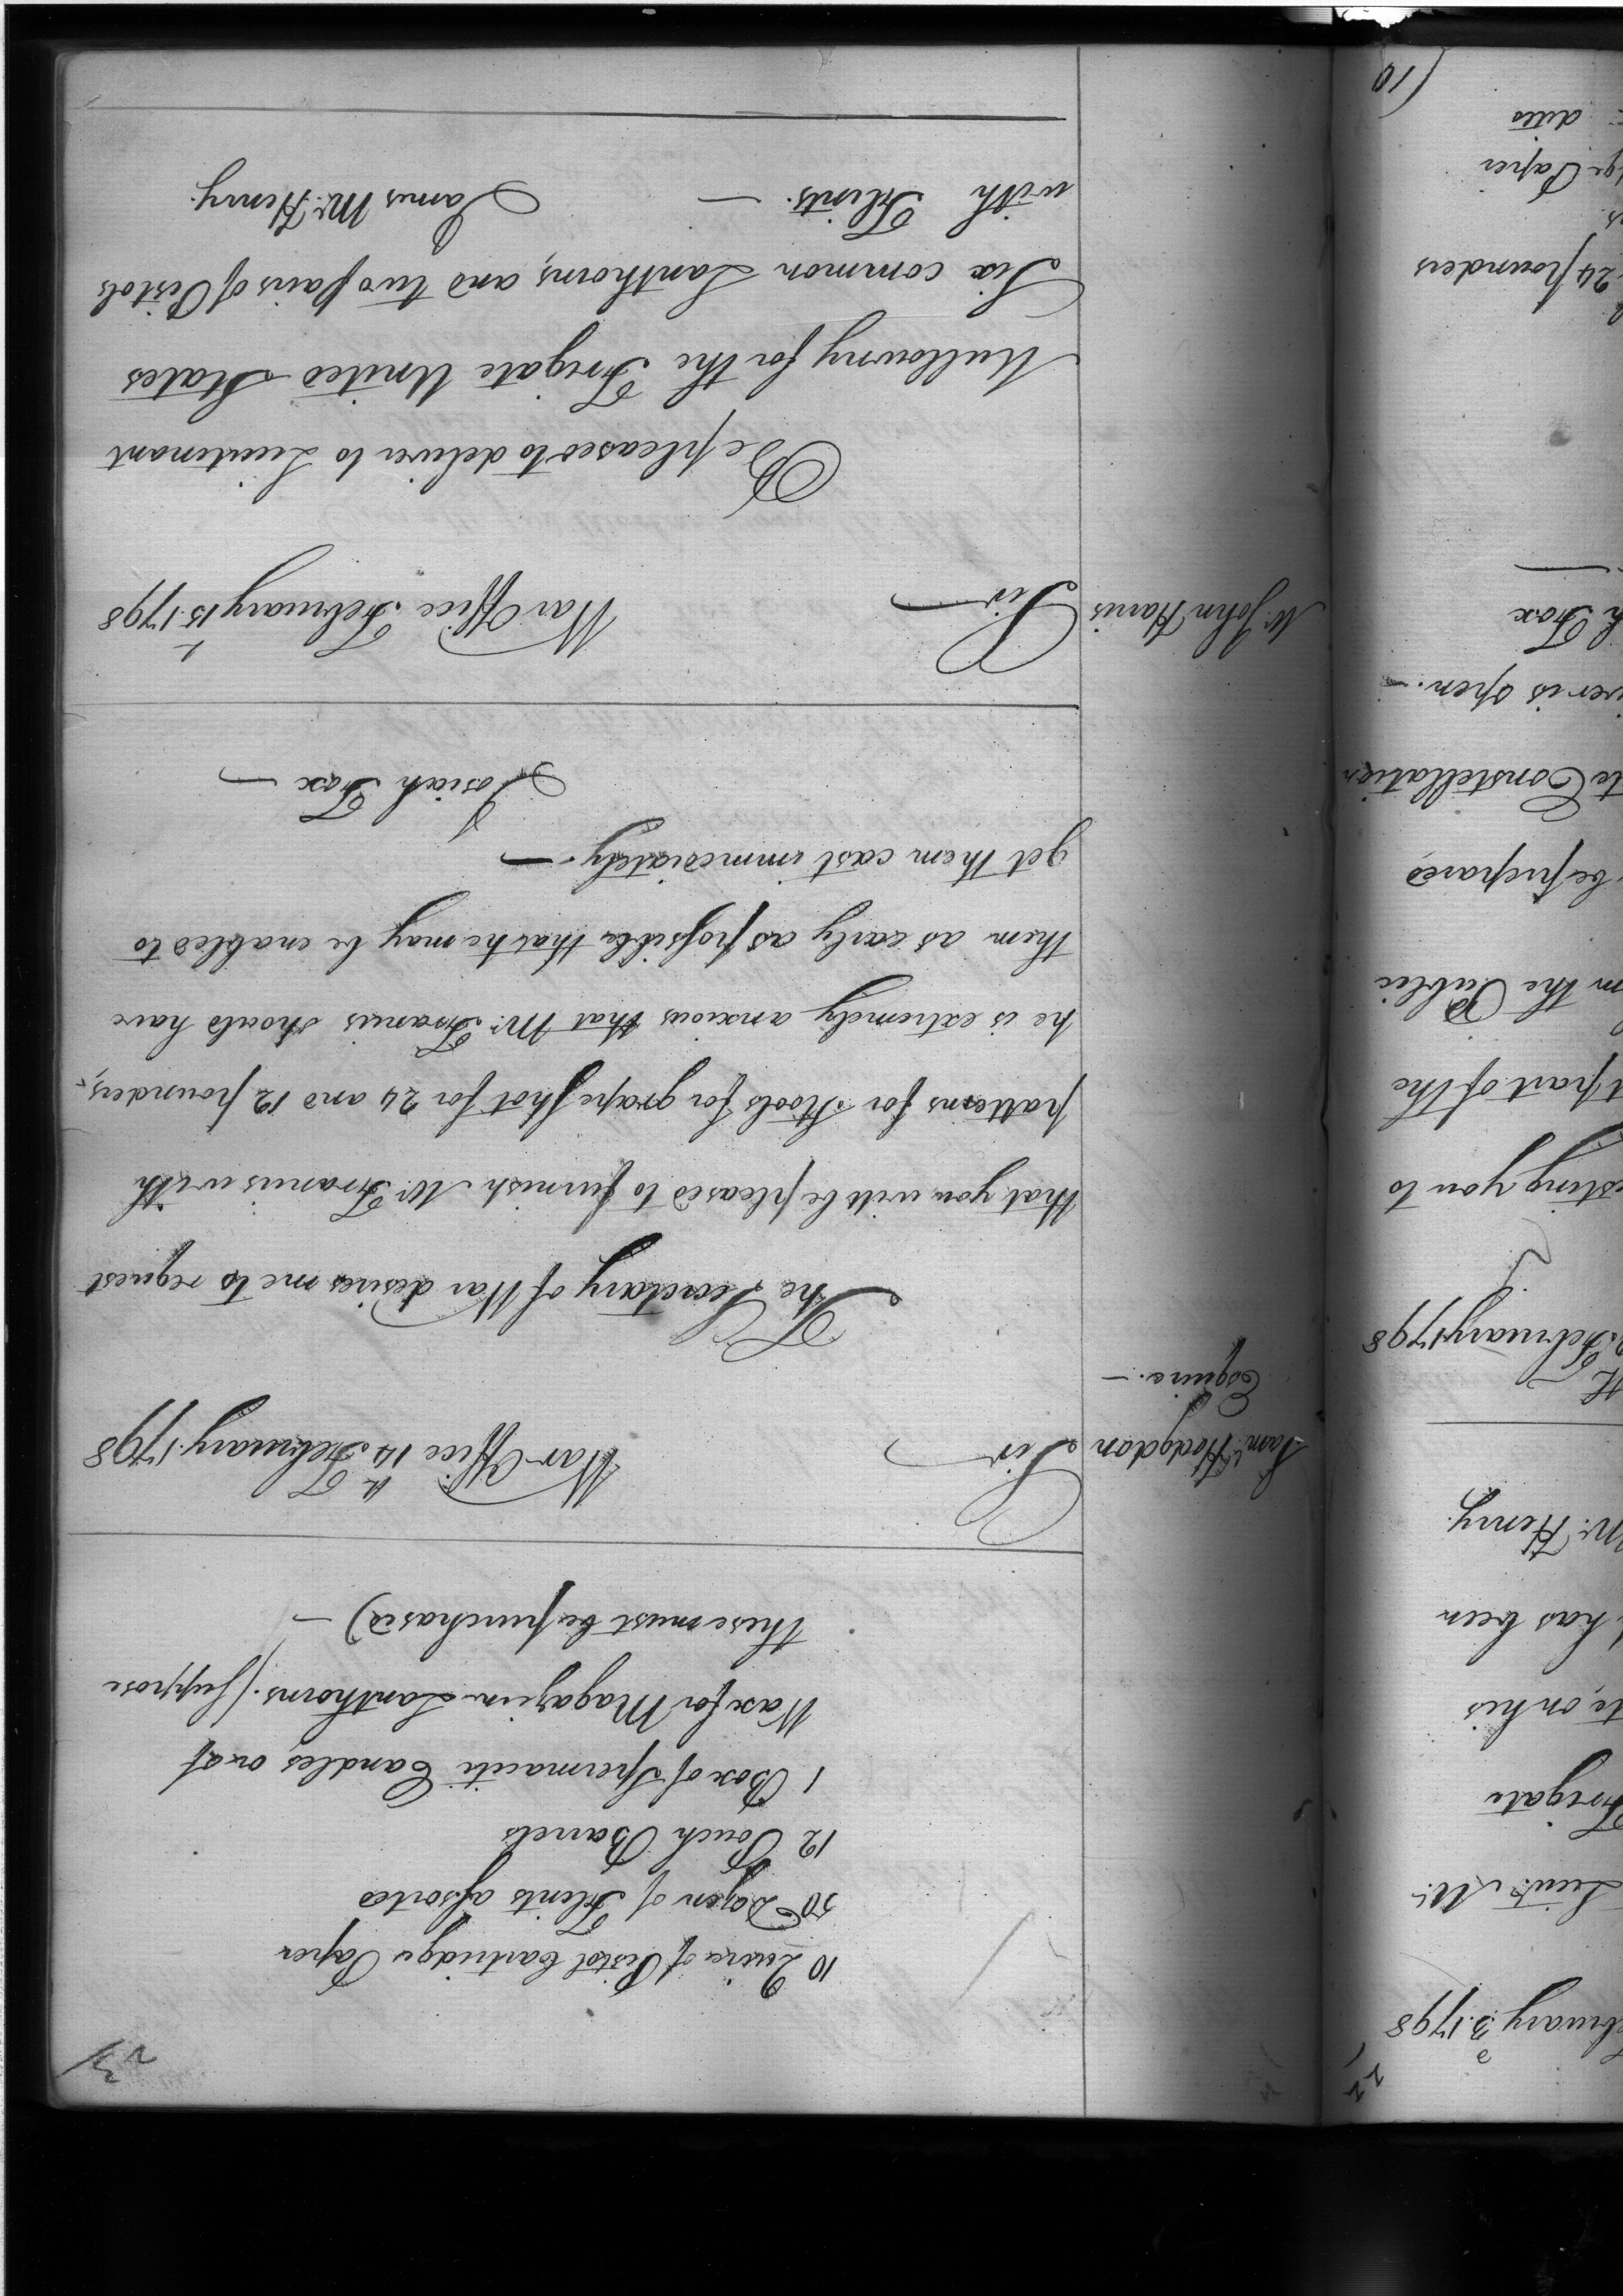 23
10 Quire of Pistol Cartridge Paper
50 Dozen of Flints assorted
12 Pouch Barrels
1 Box of Spermaciti Candles, or of
Wax for Magazin Lanthorns. (suppose
these must be purchased) —
Saml. Hodgdon
Esquire. —
Sir
War Office 14th February 1798
The Secretary of War desires me to request
that you will be pleased to furnish Mr. Francis with
patterns for Stools for grape shot for 24 and 12 pounders,
he is extremely anxious that Mr. Francis should have
them as early as possible, that he may be enabled to
get them cast immediately. —
Josiah Fox —
Mr. John Harris
Sir —
War Office February 15th 1798
Be pleased to deliver to Lieutenant
Mullowny for the Frigate United States
Six common Lanthorns, and two pairs of Pistols
with Flints. —
James McHenry.
22
February 3d. 1798
Lieut. Mc
Frigate
te, on his
has been
McHenry.
February 1798
esting you to
t part of the
m the Public
be prepared
te Constellation
iver is open. —
h Fox
24 pounders
ge Paper
ditto
10